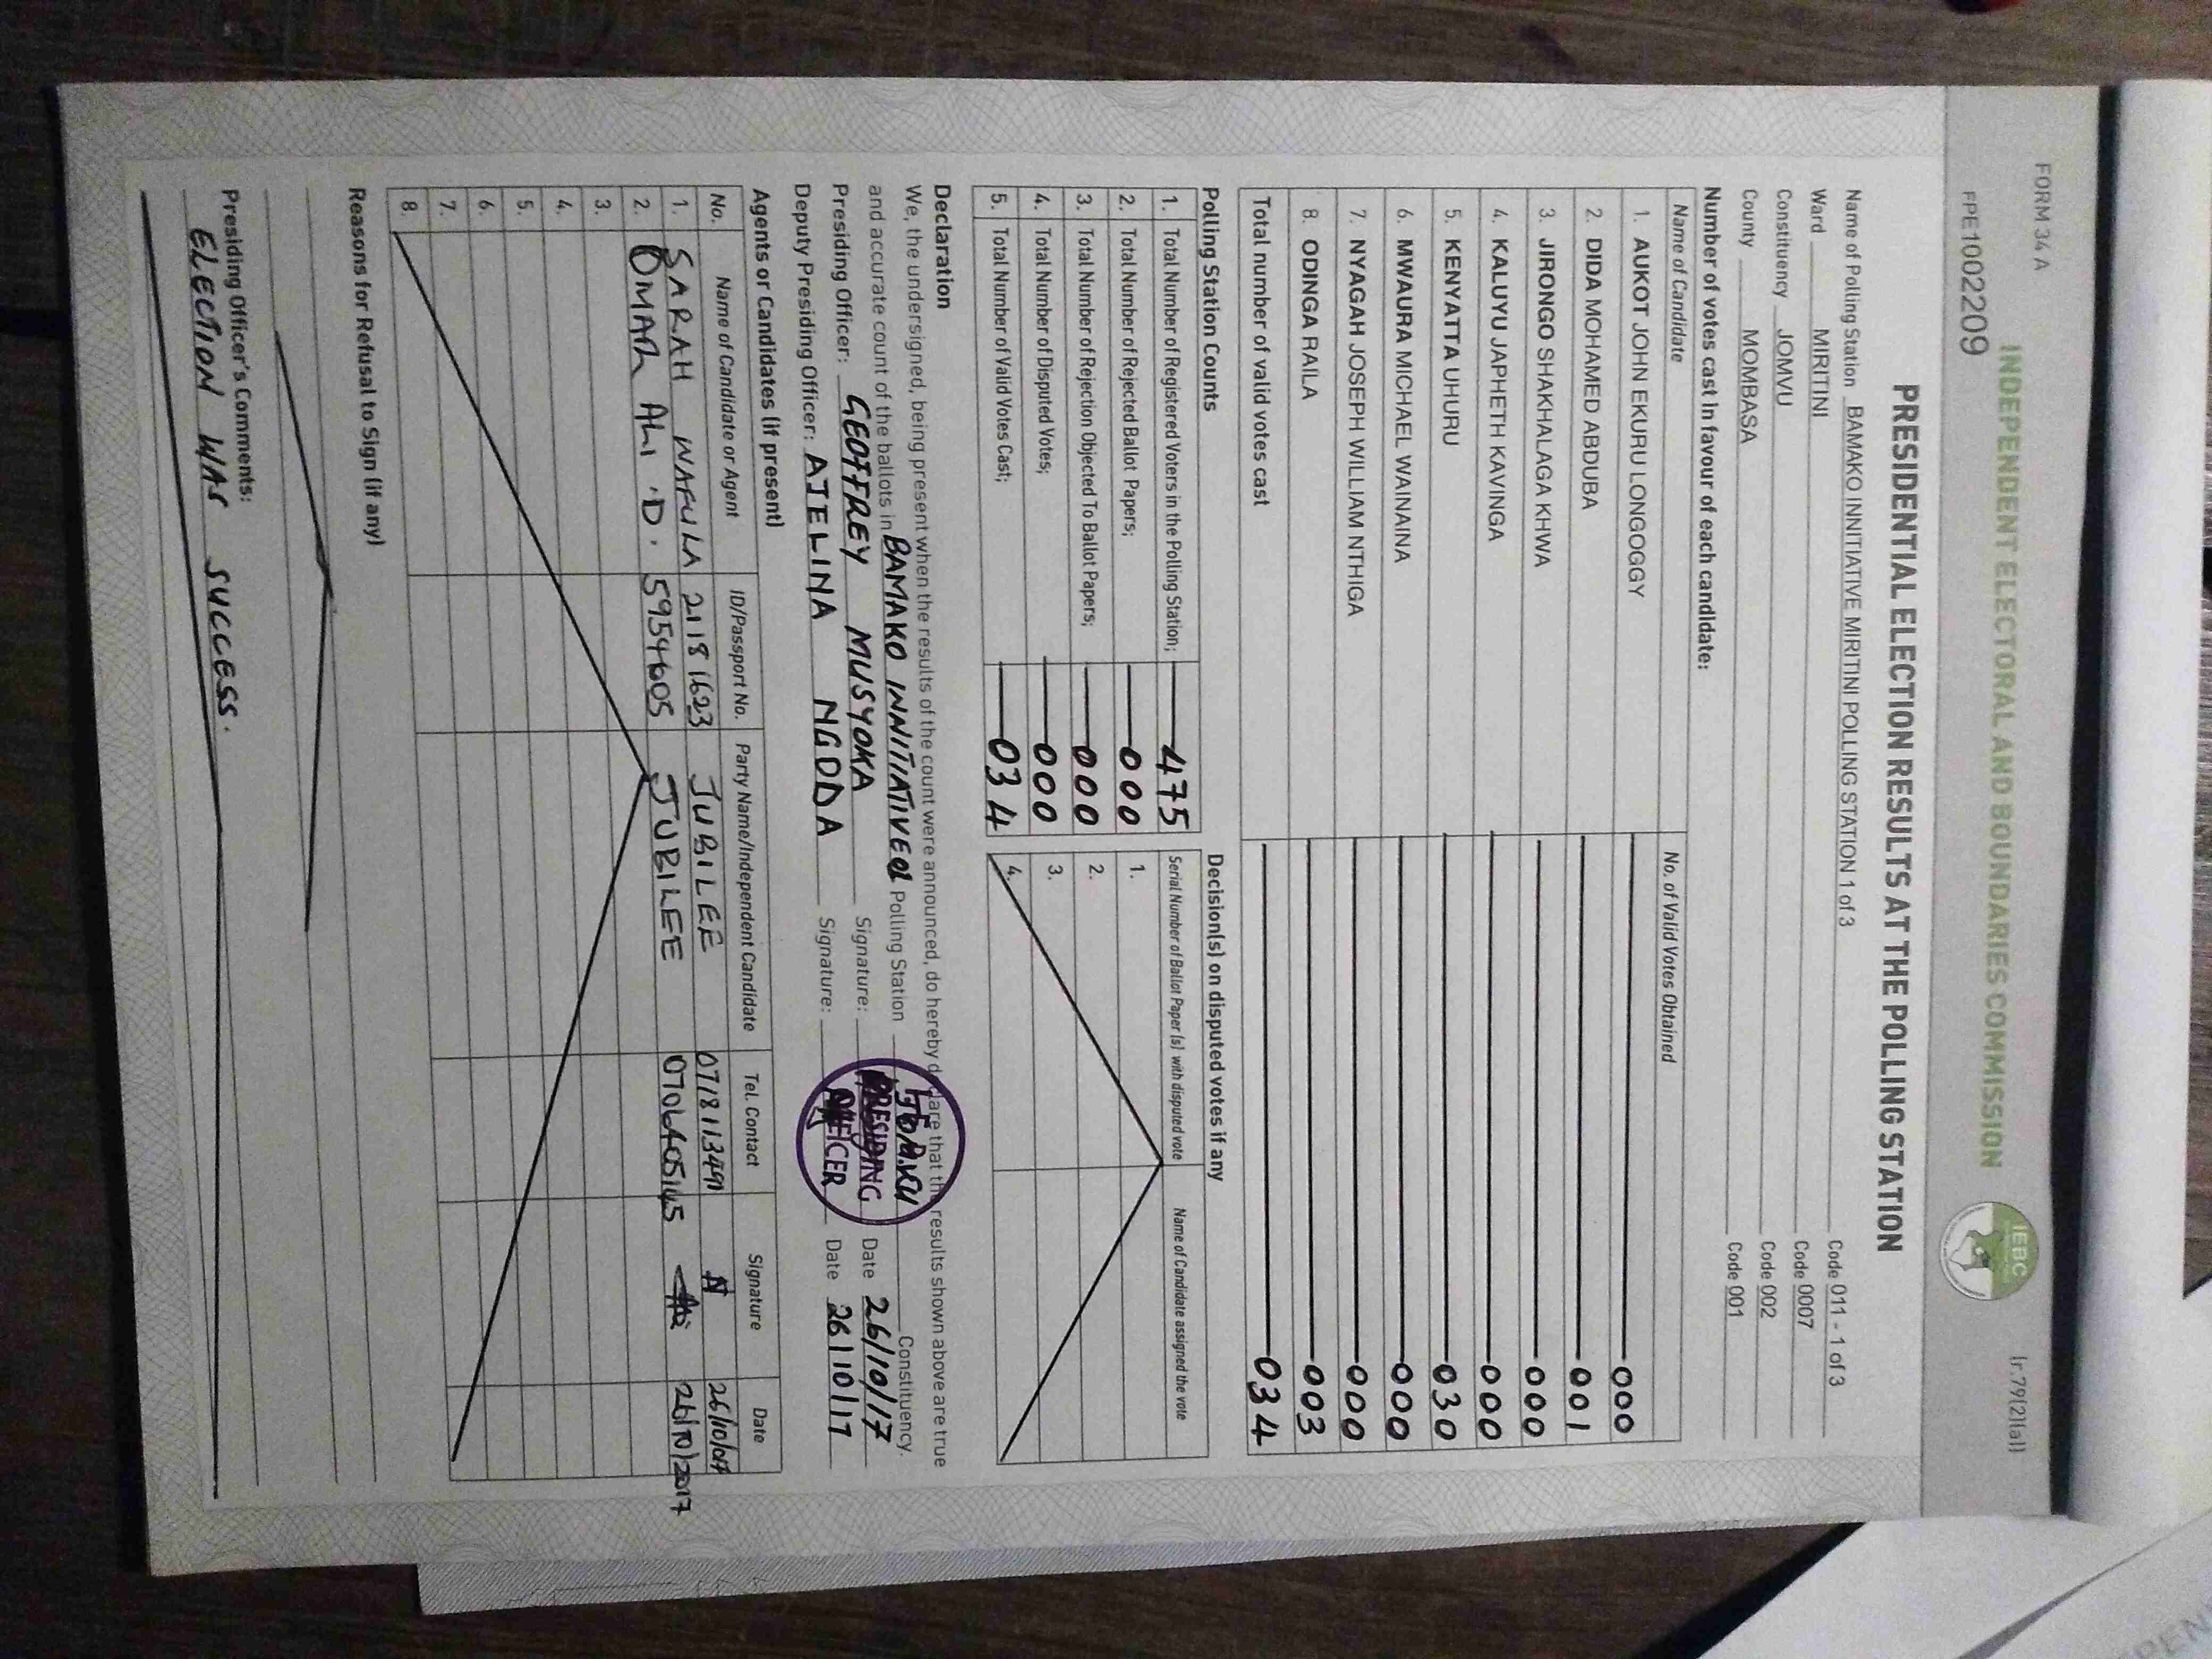 FORM 34 A
(r.79(2)(a))
FPE1002209
INDEPENDENT ELECTORAL AND BOUNDARIES COMMISSION
IEBC
PRESIDENTIAL ELECTION RESULTS AT THE POLLING STATION
Name of Polling Station BAMAKO INNITIATIVE MIRITINI POLLING STATION 1 of 3 Code 011 - 1 of 3
Ward MIRITINI Code 0007
Constituency JOMVU Code 002
County MOMBASA Code 001
Number of votes cast in favour of each candidate:
Name of Candidate No. of Valid Votes Obtained
1. AUKOT JOHN EKURU LONGOGGY 000
2. DIDA MOHAMED ABDUBA 001
3. JIRONGO SHAKHALAGA KHWA 000
4. KALUYU JAPHETH KAVINGA 000
5. KENYATTA UHURU 030
6. MWAURA MICHAEL WAINAINA 000
7. NYAGAH JOSEPH WILLIAM NTHIGA 000
8. ODINGA RAILA 003
Total number of valid votes cast 034
Polling Station Counts
1. Total Number of Registered Voters in the Polling Station; 475
2. Total Number of Rejected Ballot Papers; 000
3. Total Number of Rejection Objected To Ballot Papers; 000
4. Total Number of Disputed Votes; 000
5. Total Number of Valid Votes Cast; 034
Decision(s) on disputed votes if any
Serial Number of Ballot Paper (s) with disputed vote Name of Candidate assigned the vote
1.
2.
3.
4.
Declaration
We, the undersigned, being present when the results of the count were announced, do hereby declare that the results shown above are true
and accurate count of the ballots in BAMAKO INNITIATIVE 01 Polling Station Constituency.
Presiding Officer: GEOFFREY MUSYOKA Signature: Date 26/10/17
Deputy Presiding Officer: AJELINA NGODA Signature: Date 26/10/17
PRESIDING
OFFICER
Agents or Candidates (if present)
No. Name of Candidate or Agent ID/Passport No. Party Name/Independent Candidate Tel. Contact Signature Date
1. SARAH WAFULA 21181623 JUBILEE
2. OMAR ALI .D. 5954605 JUBILEE 26/10/2017
3.
4.
5.
6.
7.
8.
Reasons for Refusal to Sign (if any)
Presiding Officer's Comments:
ELECTION WAS SUCCESS.